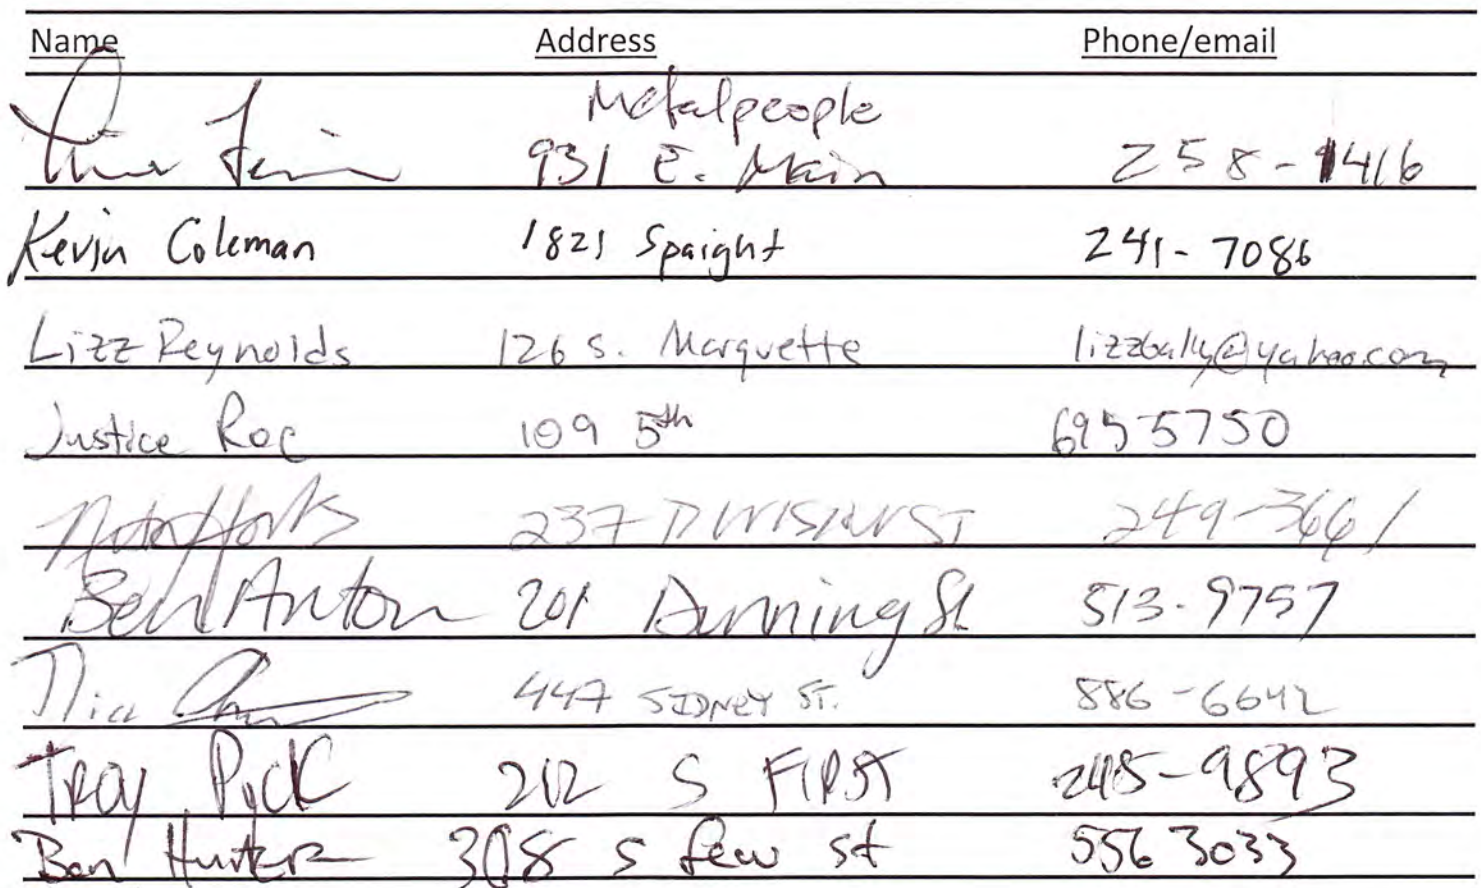 Name Address Phone/email
Metalpeople
931 E. Main 258-1416
Kevin Coleman 1821 Spaight 241-7086
Lizz Reynolds 126 S. Marquette @yahoo.com
Justice Roc 109 5th 695 5750
237 DIVISION ST 249-3661
Ben Anton 201 Dunning St 513-9757
447 SIDNEY ST. 886-6642
TROY 212 S FIRST 245-9893
Ben Hunter 308 S few st 556 3033